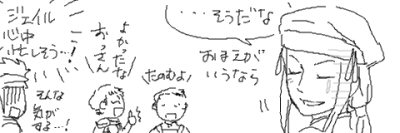 ・・・そうだな
おまえが
いうなら
たのむよ
よかったな
おっさん
ジェイル
心中
忙しそう…!
そんな
気が
する…!